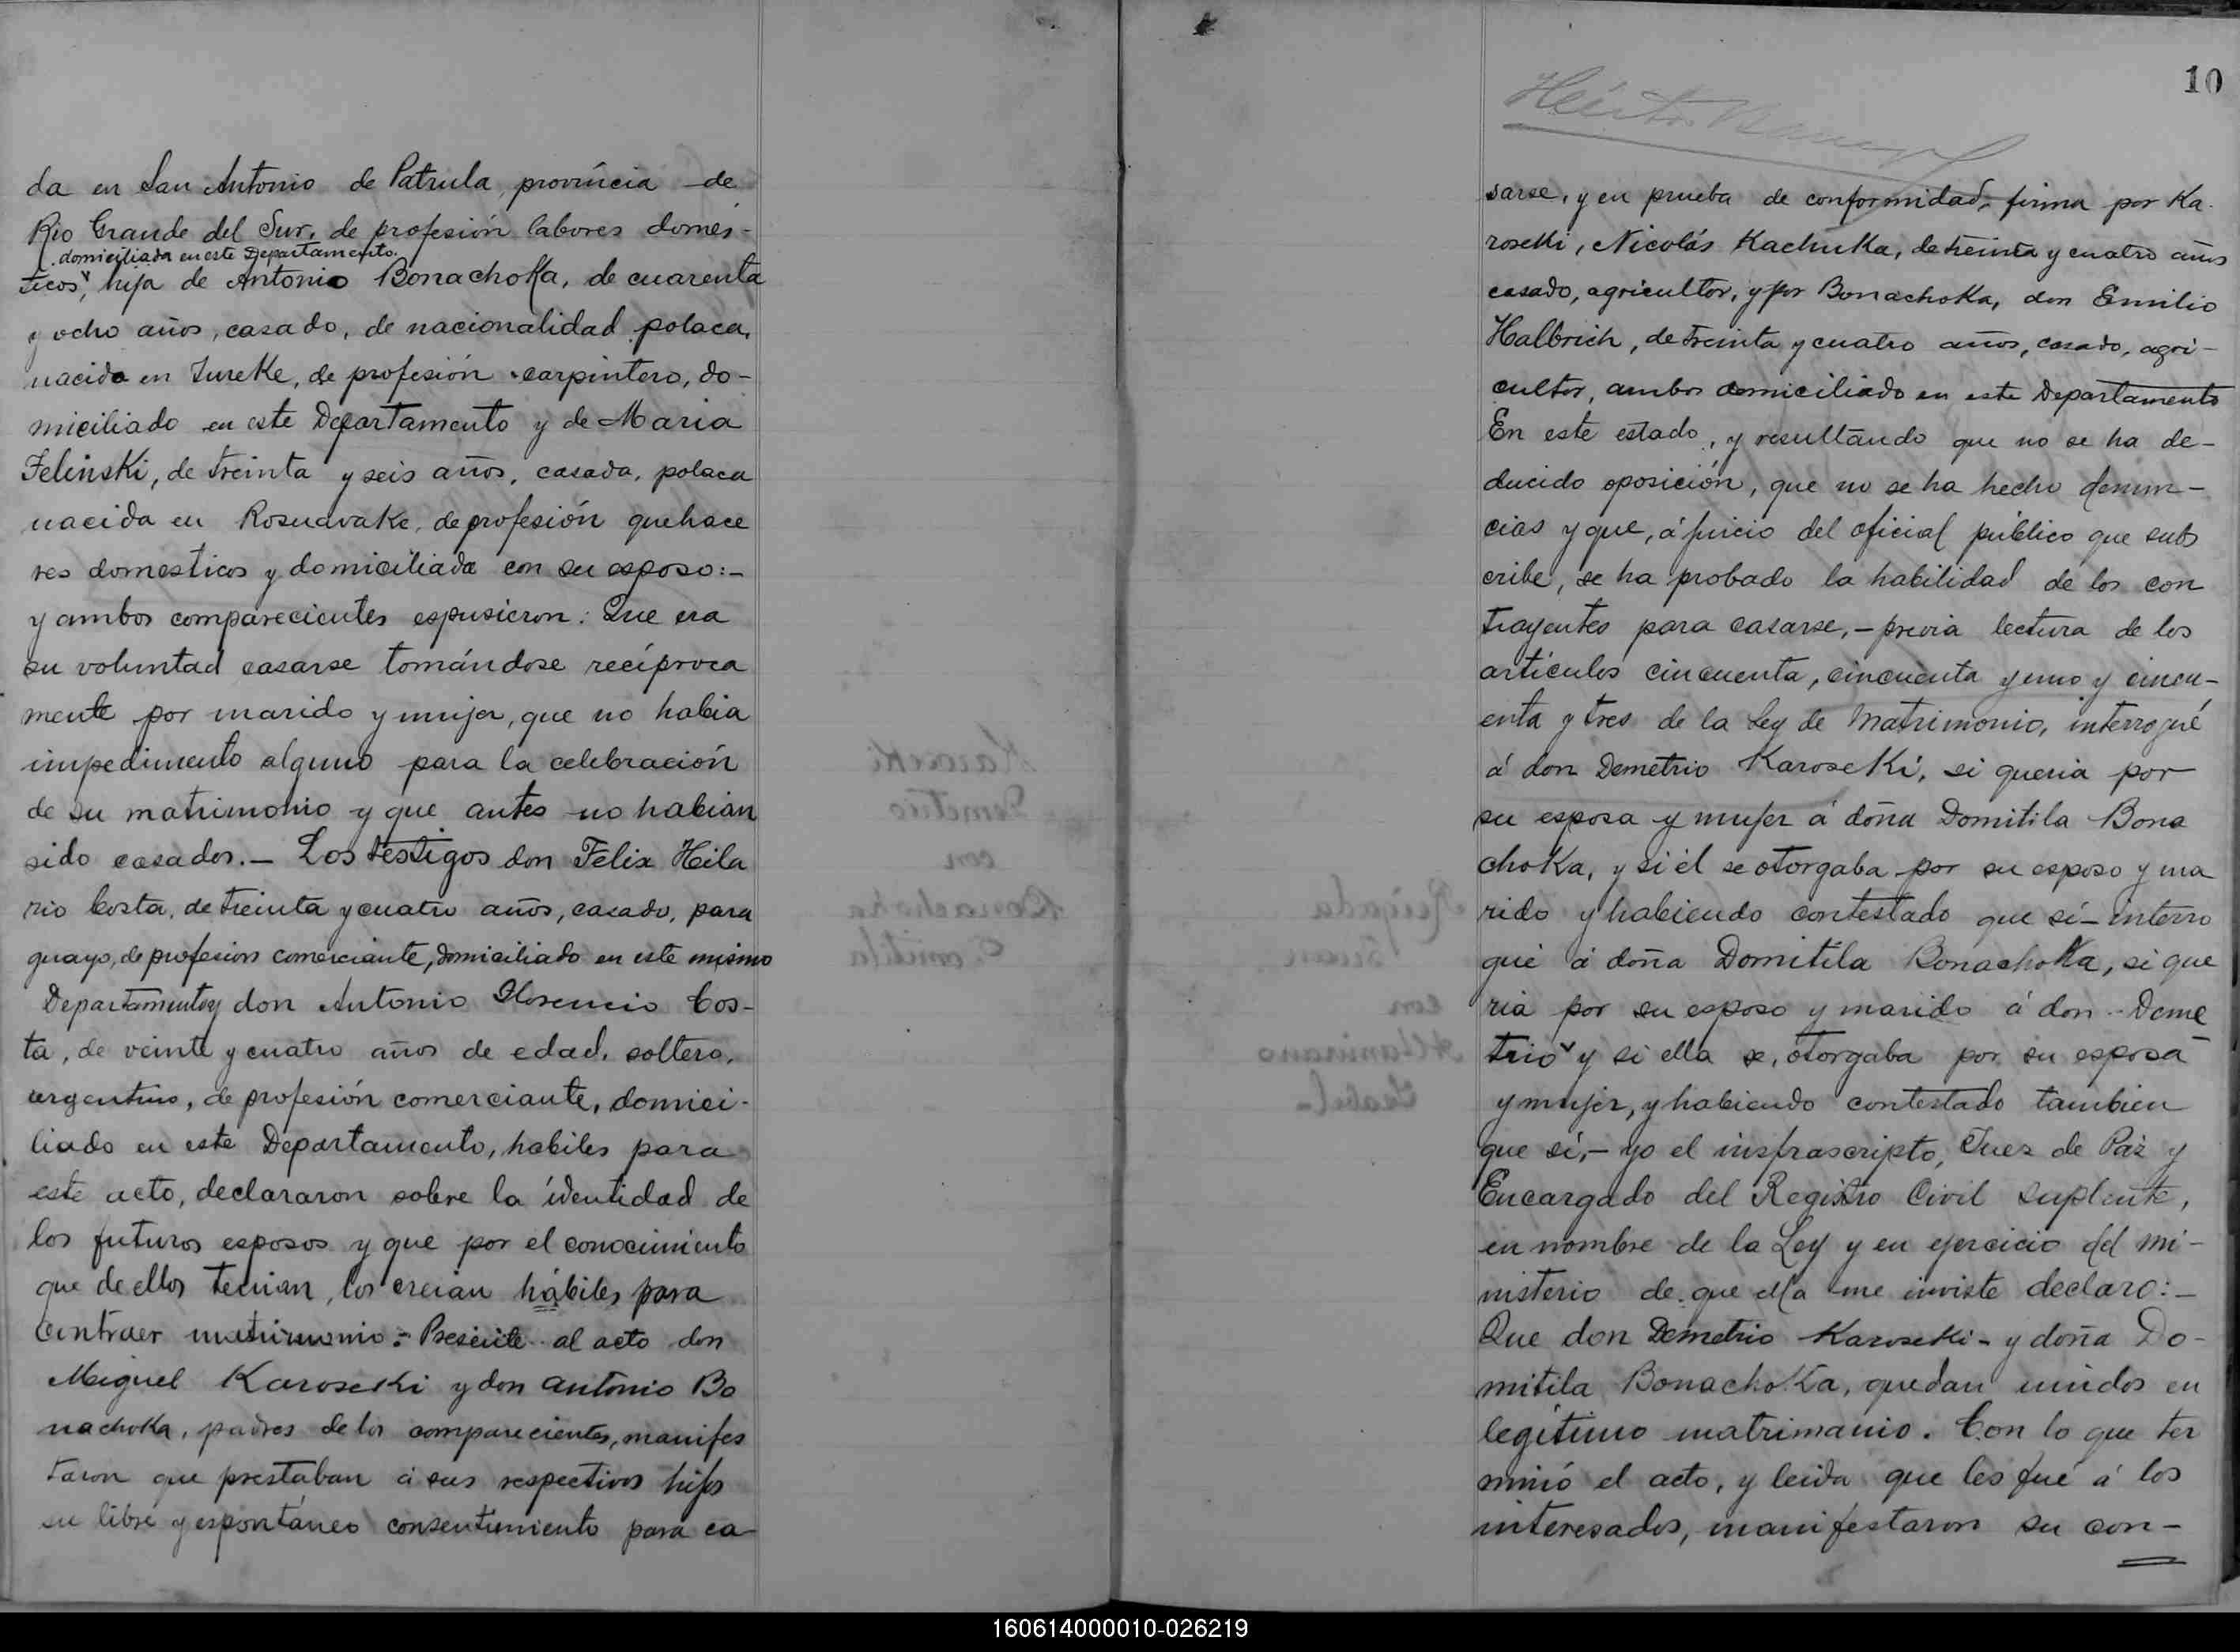 da en San Antonio de Patrula, província de
Rio Grande del Sur, de profesión labores domés-
domiciliada en este Departamento.
ticos, hija de Antonio Bonachoka, de cuarenta
y ocho años, casado, de nacionalidad polaca,
nacido en Jureke, de profesión carpintero, do-
miciliado en este Departamento y de Maria
Felinski, de treinta y seis años, casada, polaca
nacida en Rosudvake, de profesión quehace
res domesticos y domiciliada con su esposo:-
y ambos comparecientes espusieron: Que era
su voluntad casarse tomándose recíproca
mente por marido y mujer, que no habia
impedimento alguno para la celebración
de su matrimonio y que antes no habian
sido casados.- Los testigos don Felix Hila
rio Costa, de treinta y cuatro años, casado, para
guayo, de profesion comerciante, domiciliado en este mismo
Departamento y don Antonio Florencio Cos-
ta, de veinte y cuatro años de edad, soltero,
argentino, de profesión comerciante, domici-
liado en este Departamento, habiles para
este acto, declararon sobre la identidad de
los futuros esposos y que por el conocimiento
que de ellos tenian, los creian hábiles para
contraer matrimonio.= Presente al acto don
Miguel Karoseki y don Antonio Bo
nachoka, padres de los comparecientes, manifes
taron que prestaban á sus respectivos hijos
su libre y espontáneo consentimiento para ca
10
Héctor
sarse, y en prueba de conformidad, firma por Ka
roseki, Nicolás Kachuka, de treinta y cuatro años
casado, agricultor, y por Bonachoka, don Emilio
Halbrich, de treinta y cuatro años, casado, agri-
cultor, ambos domiciliado en este Departamento
En este estado, y resultando que no se ha de-
ducido oposición, que no se ha hecho denun-
cias y que, á juicio del oficial público que subs
cribe, se ha probado la habilidad de los con
trayentes para casarse,- previa lectura de los
artículos cincuenta, cincuenta y uno y cincu-
enta y tres de la Ley de Matrimonio, interrogué
á don Demetrio Karoseki, si queria por
su esposa y mujer á doña Domitila Bona
choka, y si él se otorgaba por su esposo y ma
rido y habiendo contestado que sí- interro
gué á doña Domitila Bonachoka, si que
ria por su esposo y marido á don Deme
trio y si ella se, otorgaba por su esposa
y mujer, y habiendo contestado tambien
que sí,- yo el insfrascripto, Juez de Paz y
Encargado del Registro Civil suplente,
en nombre de la Ley y en ejercicio del mi-
nisterio de que ella me inviste declaro:-
Que don Demetrio Karoseki- y doña Do-
mitila Bonachoka, quedan unidos en
legítimo matrimanio. Con lo que ter
minó el acto, y leida que les fué á los
interesados, manifestaron su con-
160614000010-026219